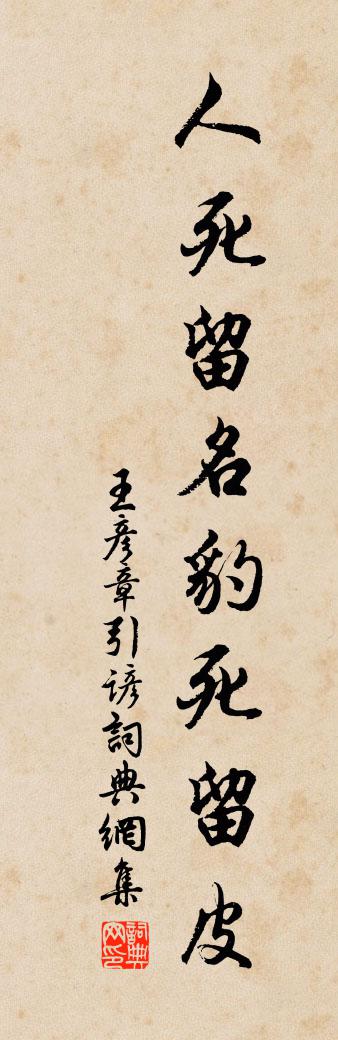 人死留名豹死留皮
王彥章引諺詞典網集
詞典
网印